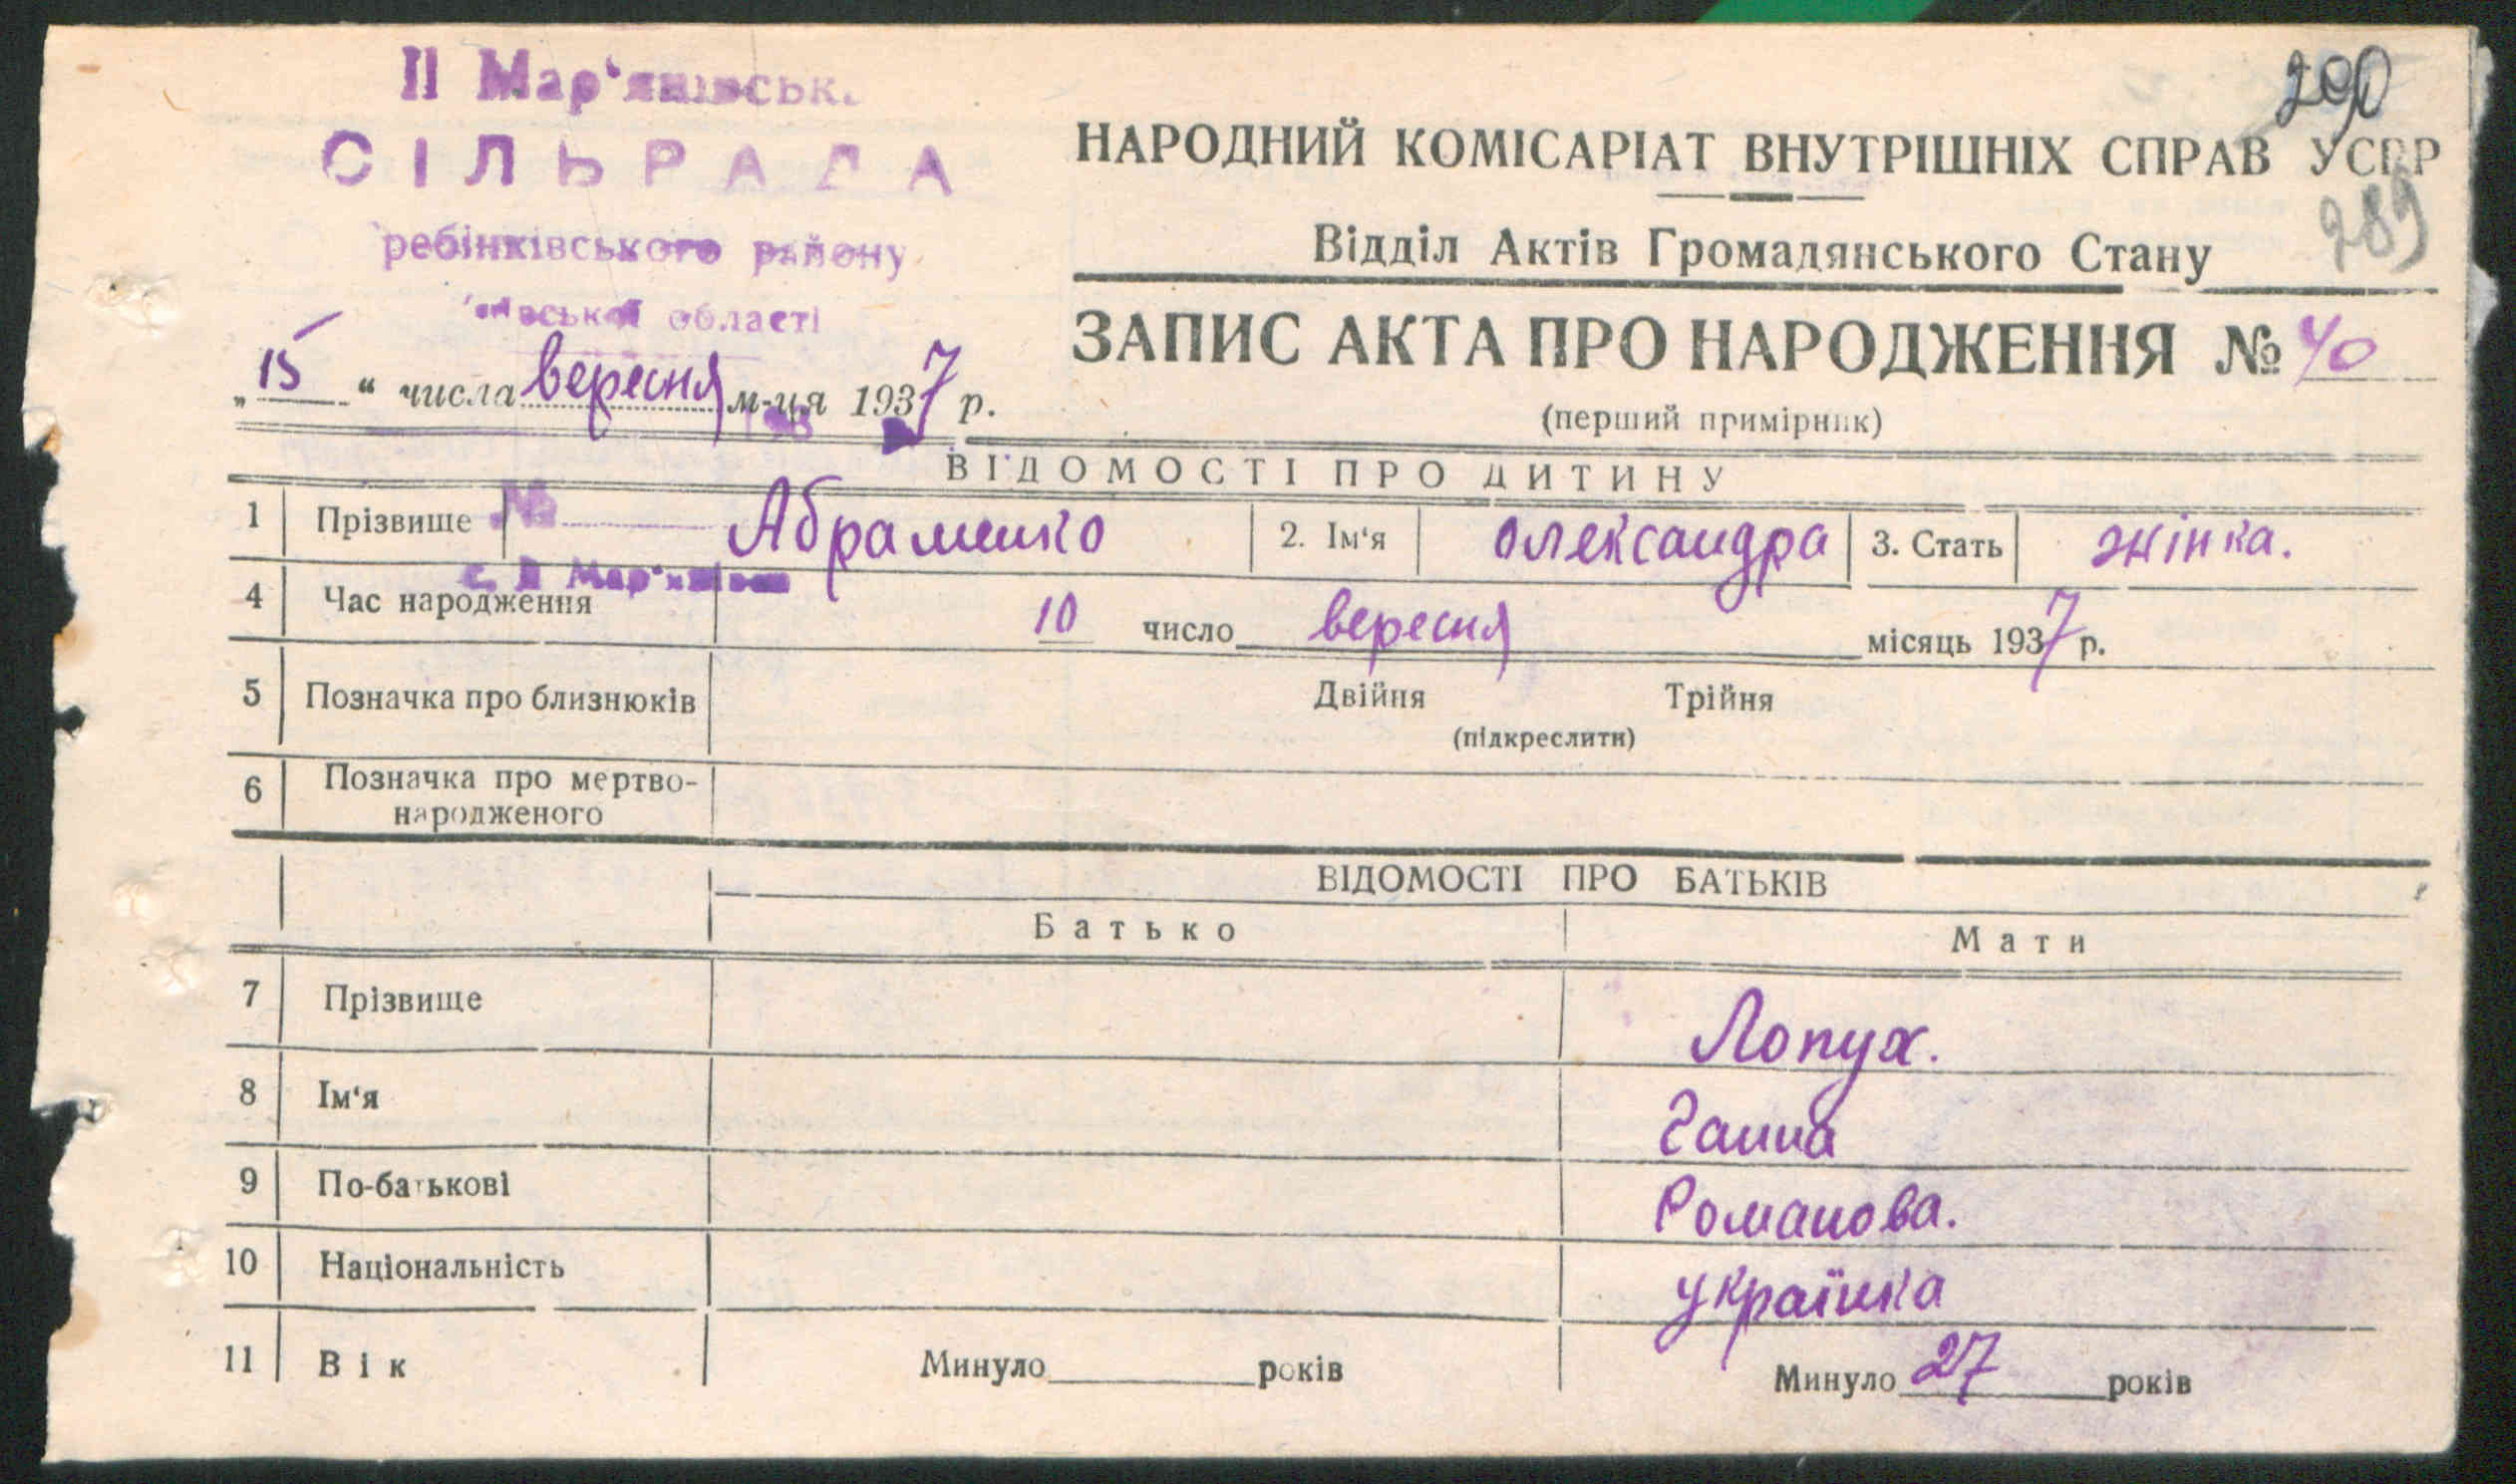 ІІ Мар'янівськ.
СІЛЬРАДА
ребінківського району
області
290
НАРОДНИЙ КОМІСАРІАТ ВНУТРІШНІХ СПРАВ УСРР
289
Відділ Актів Громадянського Стану
ЗАПИС АКТА ПРО НАРОДЖЕННЯ № 40
„15“ числа вересня м-ця 1937 р.
(перший примірник)
ВІДОМОСТІ ПРО ДИТИНУ
1 Прізвище № Абраменко 2. Ім'я Олександра 3. Стать жінка.
с. ІІ Мар'янівка
4 Час народження 10 число вересня місяць 1937 р.
5 Позначка про близнюків Двійня Трійня
(підкреслити)
6 Позначка про мертво-
народженого
ВІДОМОСТІ ПРО БАТЬКІВ
Батько Мати
7 Прізвище Лопух.
8 Ім'я Ганна
9 По-батькові Романова.
10 Національність українка
11 Вік Минуло років Минуло 27 років